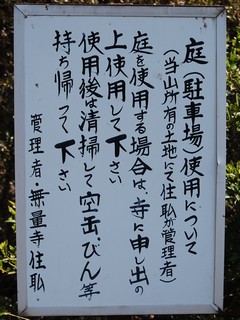 庭(駐車場)使用について
(当山所有の土地にて住職が管理者)
庭を使用する場合は、寺に申し出の
上使用して下さい
使用後は清掃して空缶、びん等
持ち帰って下さい
管理者・無量寺住職.